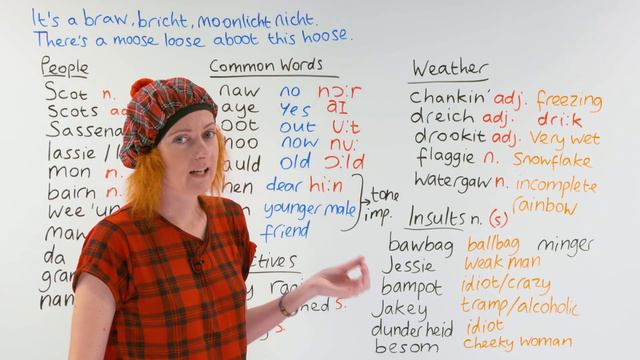 It's a braw, bricht, moonlicht nicht.
There's a moose loose aboot this hoose.
People
Scot n.
Scots
Sassena
lassie
mon n.
bairn n.
wee 'un
maw
da
gran
nan
Common Words
naw no nɔ:r
aye yes aɪ
oot out u:t
noo now nu:
auld old ɔ:ld
hen dear hi:n
younger male
friend
tone
imp.
ctives
s.
s.
Weather
chankin' adj. freezing
dreich adj. dri:k
drookit adj. very wet
flaggie n. snowflake
watergaw n. incomplete
rainbow
Insults n. (s)
bawbag ballbag minger
Jessie weak man
bampot idiot/crazy
Jakey tramp/alcoholic
dunderheid idiot
besom cheeky woman